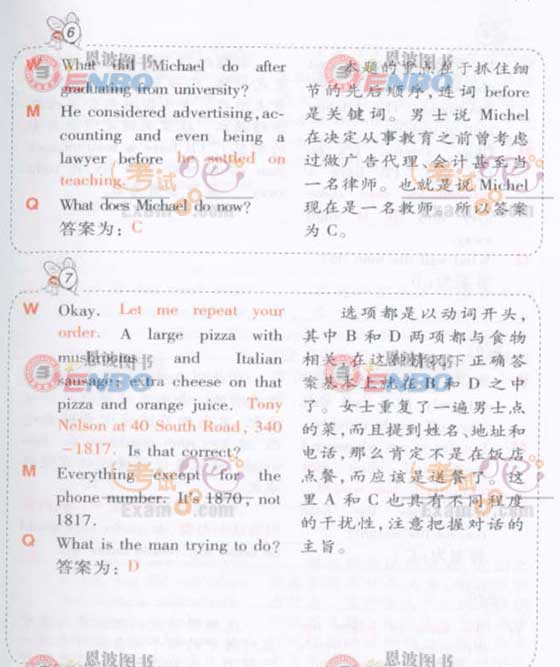 6
W What did Michael do after
graduating from university?
M He considered advertising, ac-
counting and even being a
lawyer before he settled on
teaching.
Q What does Michael do now?
答案为：C
本题的重点在于抓住细
节的先后顺序，连词 before
是关键词。男士说 Michel
在决定从事教育之前曾考虑
过做广告代理、会计甚至当
一名律师。也就是说 Michel
现在是一名教师。所以答案
为 C。
7
W Okay. Let me repeat your
order. A large pizza with
mushrooms and Italian
sausage; extra cheese on that
pizza and orange juice. Tony
Nelson at 40 South Road, 340
-1817. Is that correct?
M Everything except for the
phone number. It's 1870, not
1817.
Q What is the man trying to do?
答案为：D
选项都是以动词开头，
其中 B 和 D 两项都与食物
相关，在这种情况下正确答
案基本上就在 B 和 D 之中
了。女士重复了一遍男士点
的菜，而且提到姓名、地址和
电话，那么肯定不是在饭店
点餐，而应该是送餐了。这
里 A 和 C 也具有不同程度
的干扰性，注意把握对话的
主旨。
恩波图书
ENBO
恩波图书
ENBO
考试吧
Exam8.com
考试吧
Exam8.com
恩波图书
ENBO
恩波图书
ENBO
考试吧
Exam8.com
考试吧
Exam8.com
恩波图书
恩波图书